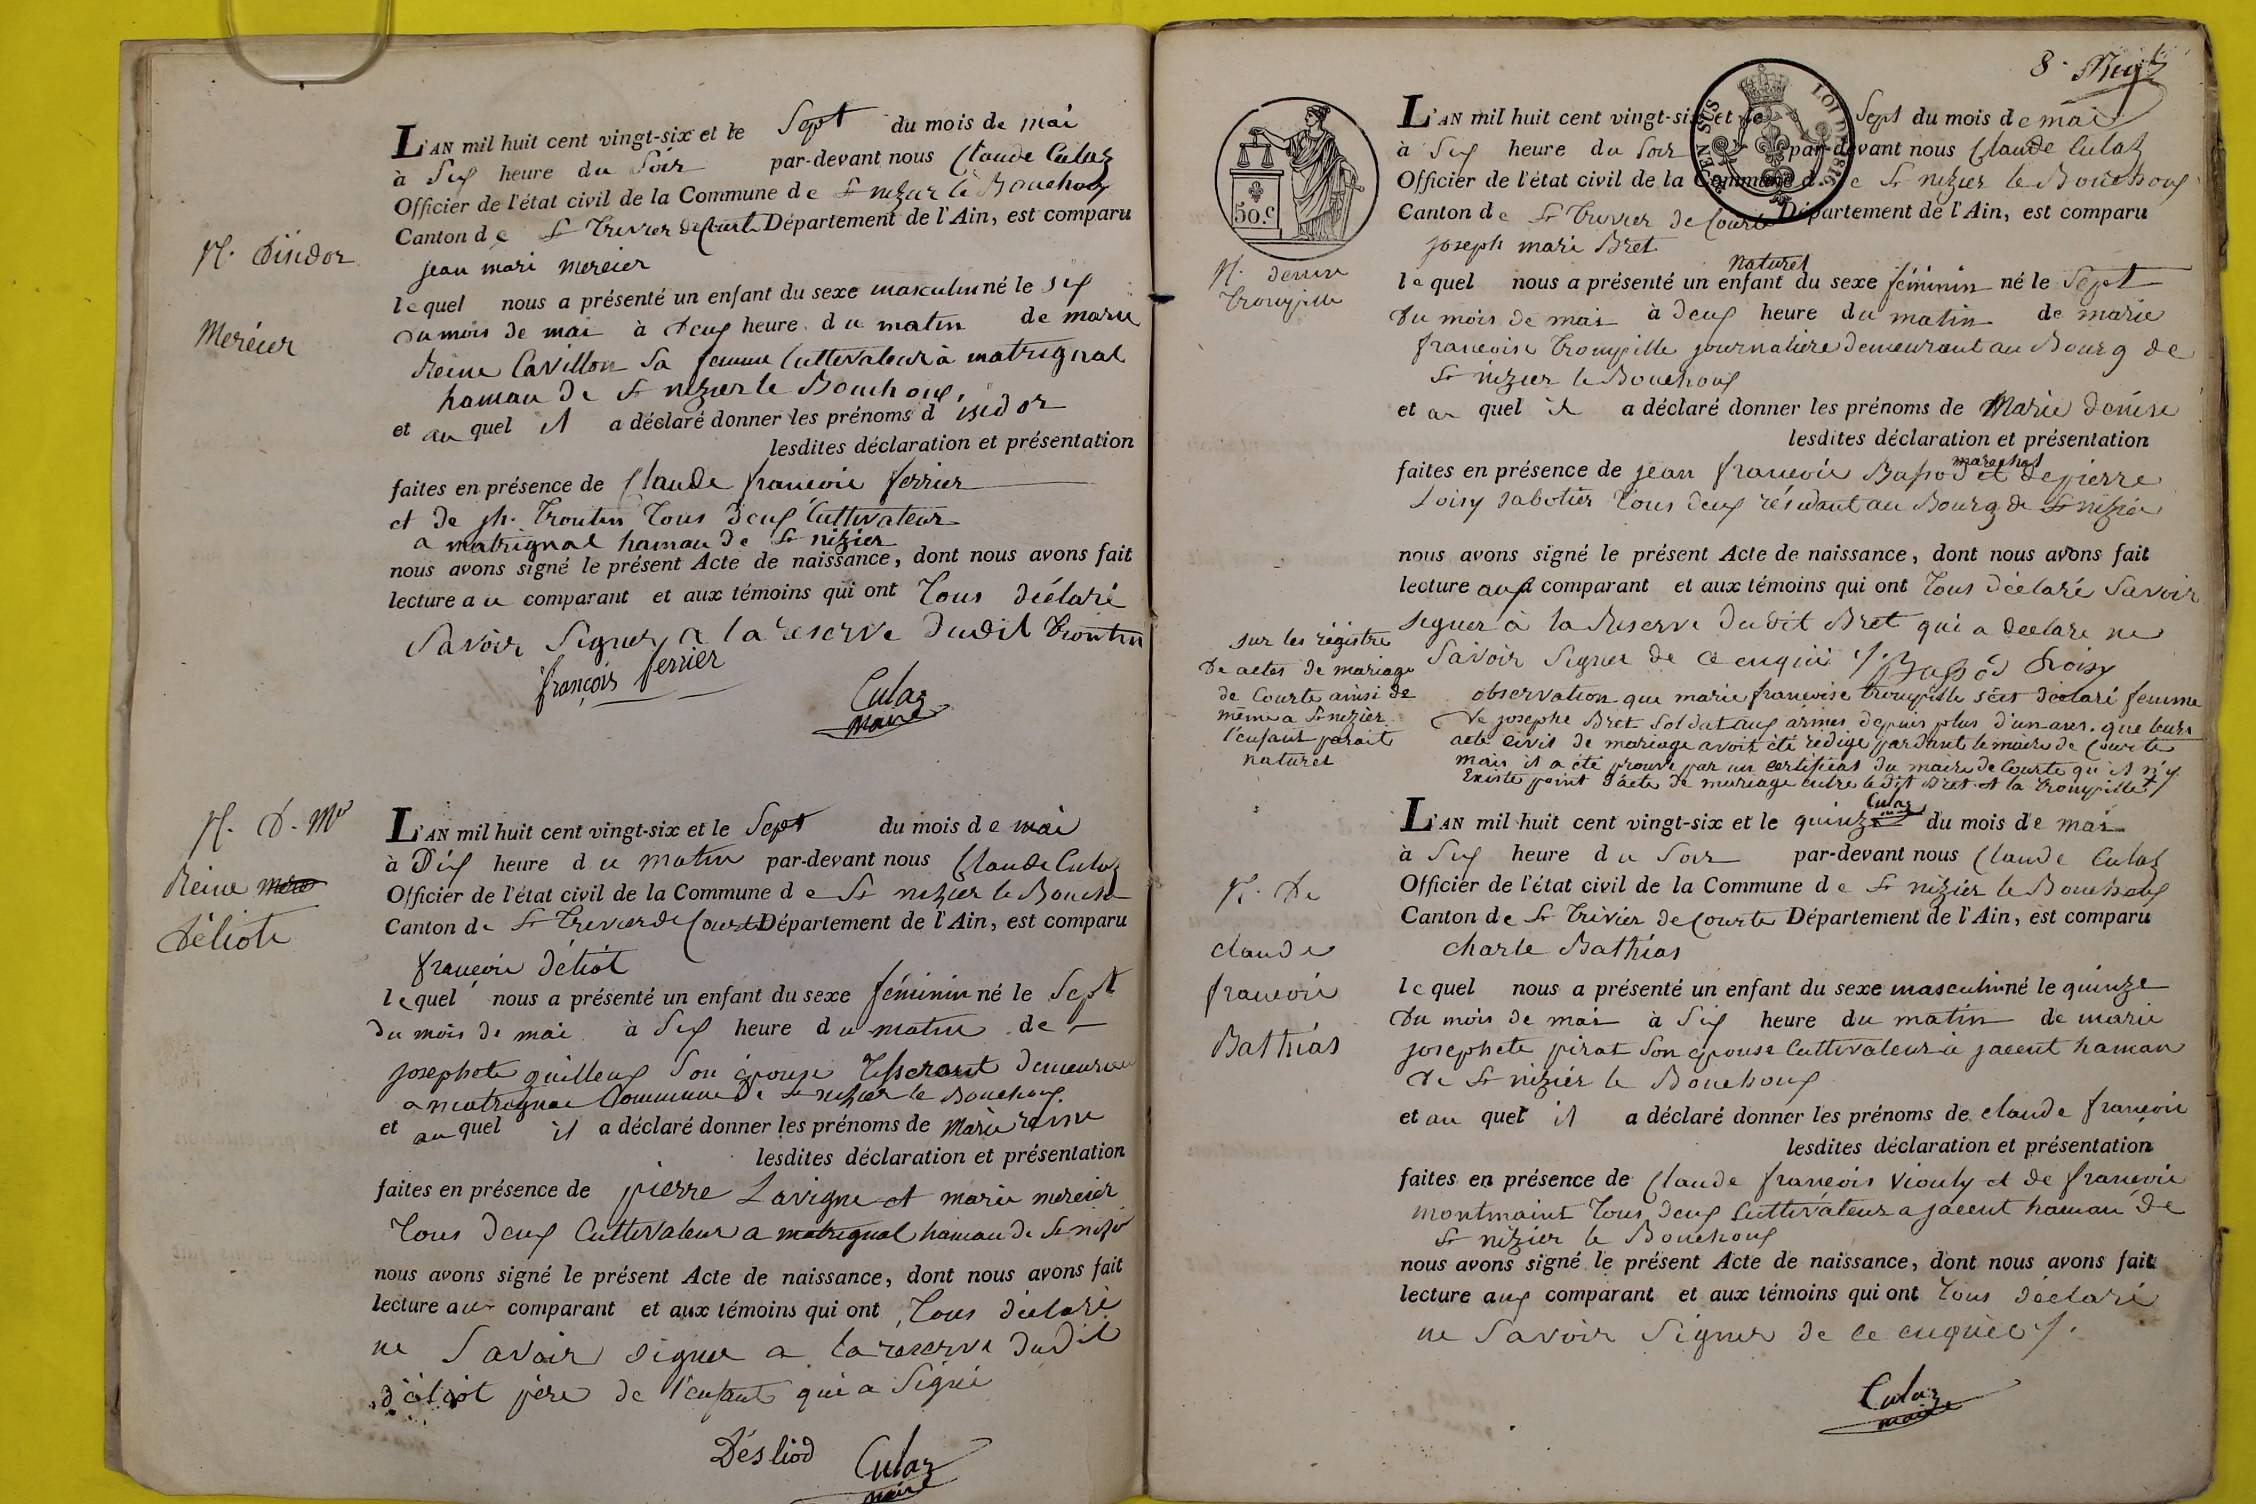 L'AN mil huit cent vingt-six et le Sept du mois de mai
à Six heure du Soir par-devant nous Claude Culaz
Officier de l'état civil de la Commune de St nizier le Bouchoux
Canton de St Trivier de Courte Département de l'Ain, est comparu
N. D'isidor
jean mari mercier
lequel nous a présenté un enfant du sexe masculin né le six
Mercier
du mois de mai à Deux heure du matin de marie
Reine Cavillon Sa femme Cultivateur à matrignat
hamau de St nizier le Bouchoux
et au quel il a déclaré donner les prénoms d'isidor
lesdites déclaration et présentation
faites en présence de Claude francois ferrier
et de jh. Troutin Tous deux Cultivateur
a matrignat hamau de St nizier
nous avons signé le présent Acte de naissance, dont nous avons fait
lecture au comparant et aux témoins qui ont Tous déclaré
Savoir Signer a la reserve dudit Troutin
françois ferrier
Culaz
maire
N. D. Mie
Reine
Déliote
L'AN mil huit cent vingt-six et le Sept du mois de mai
à Dix heure du matin par-devant nous Claude Culaz
Officier de l'état civil de la Commune de St nizier le Bouch
Canton de St Trivier de Courte Département de l'Ain, est comparu
françois déliot
lequel nous a présenté un enfant du sexe féminin né le Sept
du mois de mai à Six heure du matin de
josephete guilleux Son épouse Tisserant Demeuran
a matrignat Commune de St nizier le Bouchoux
et au quel il a déclaré donner les prénoms de Marie reine
lesdites déclaration et présentation
faites en présence de pierre Lavigne et marie mercier
Tous deux Cultivateur a matrignat hamau de St nizier
nous avons signé le présent Acte de naissance, dont nous avons fait
lecture aux comparant et aux témoins qui ont Tous déclaré
ne Savoir signer a la reserve dudit
déliot père de l'enfant qui a Signé
Désliod Culaz
maire
8.
L'AN mil huit cent vingt-six et le Sept du mois de mai
à Six heure du Soir par-devant nous Claude Culaz
Officier de l'état civil de la Commune de St nizier le Bouchoux
Canton de St Trivier de Courte Département de l'Ain, est comparu
EN SUS LOI DE 1816
50.c
joseph mari Bret
N. denise
Trompille
naturel
lequel nous a présenté un enfant du sexe féminin né le Sept
du mois de mai à deux heure du matin de marie
francoise Trompille journaliere demeurant au Bourg de
St nizier le Bouchoux
et au quel il a déclaré donner les prénoms de Marie denise
lesdites déclaration et présentation
marechal
faites en présence de jean francois Bassod et de pierre
Loisy sabotier Tous deux résidant au Bourg de St nizier
nous avons signé le présent Acte de naissance, dont nous avons fait
lecture aux comparant et aux témoins qui ont Tous déclaré Savoir
signer à la Reserve dudit Bret qui a declaré ne
Savoir Signer de ce enquis Bassod Loisy
observation que marie francoise trompille s'est déclaré femme
de josephe Bret Soldat aux armes depuis plus d'un ans. que leurs
acte civil de mariage avoit été rédigé pardevant le maire de Courte
mais il a été prouvé par un certificat du maire de Courte qu'il n'y
existe point d'acte de mariage entre ledit Bret et la trompille
sur les régistre
de actes de mariage
de Courte ainsi de
même a St nizier
l'enfant parait
naturel
Culaz
maire
L'AN mil huit cent vingt-six et le quinze du mois de mai
à Six heure du Soir par-devant nous Claude Culaz
Officier de l'état civil de la Commune de St nizier le Bouchoux
Canton de St Trivier de Courte Département de l'Ain, est comparu
N. De
claude
francois
Bathias
charle Bathias
lequel nous a présenté un enfant du sexe masculin né le quinze
du mois de mai à Six heure du matin de marie
josephete pirat Son épouse Cultivateur a jacent hamau
de St nizier le Bouchoux
et au quel il a déclaré donner les prénoms de claude francois
lesdites déclaration et présentation
faites en présence de Claude francois Viouly et de francois
montmaint Tous deux Cultivateur a jacent hamau de
St nizier le Bouchoux
nous avons signé le présent Acte de naissance, dont nous avons fait
lecture aux comparant et aux témoins qui ont Tous déclaré
ne Savoir Signer de ce enquis
Culaz
maire